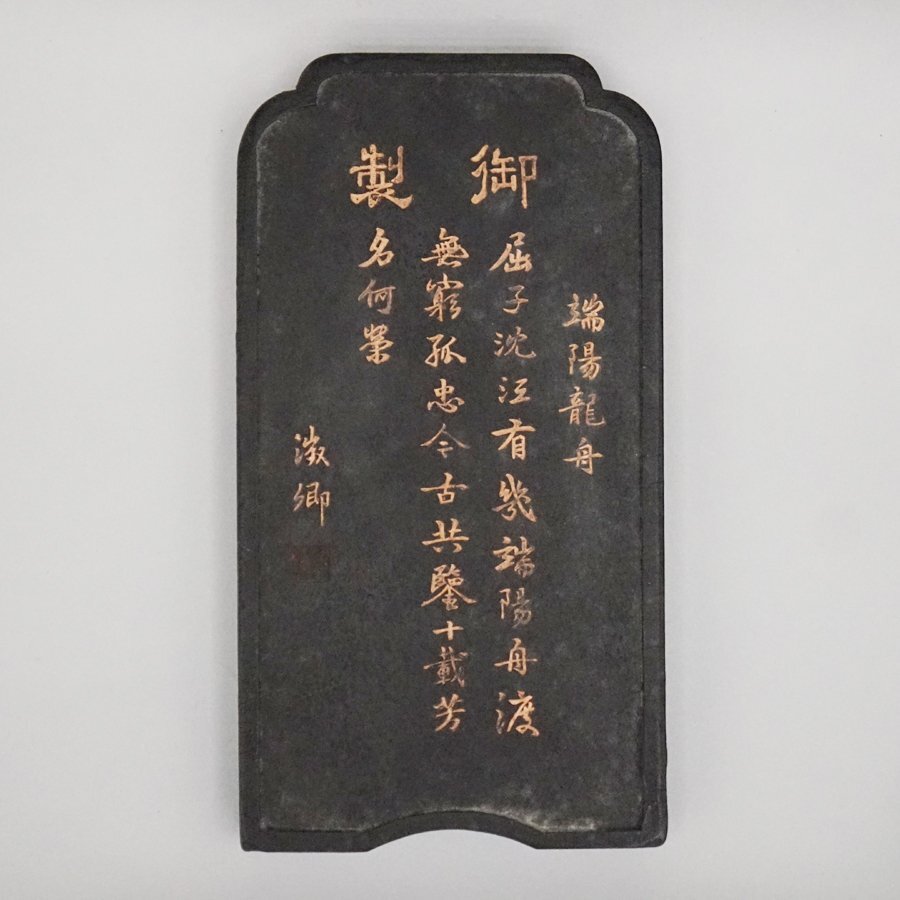 御製
端陽龍舟
屈子沈江有幾端陽舟渡
無窮孤忠今古共鑒十載芳
名何榮
澂卿